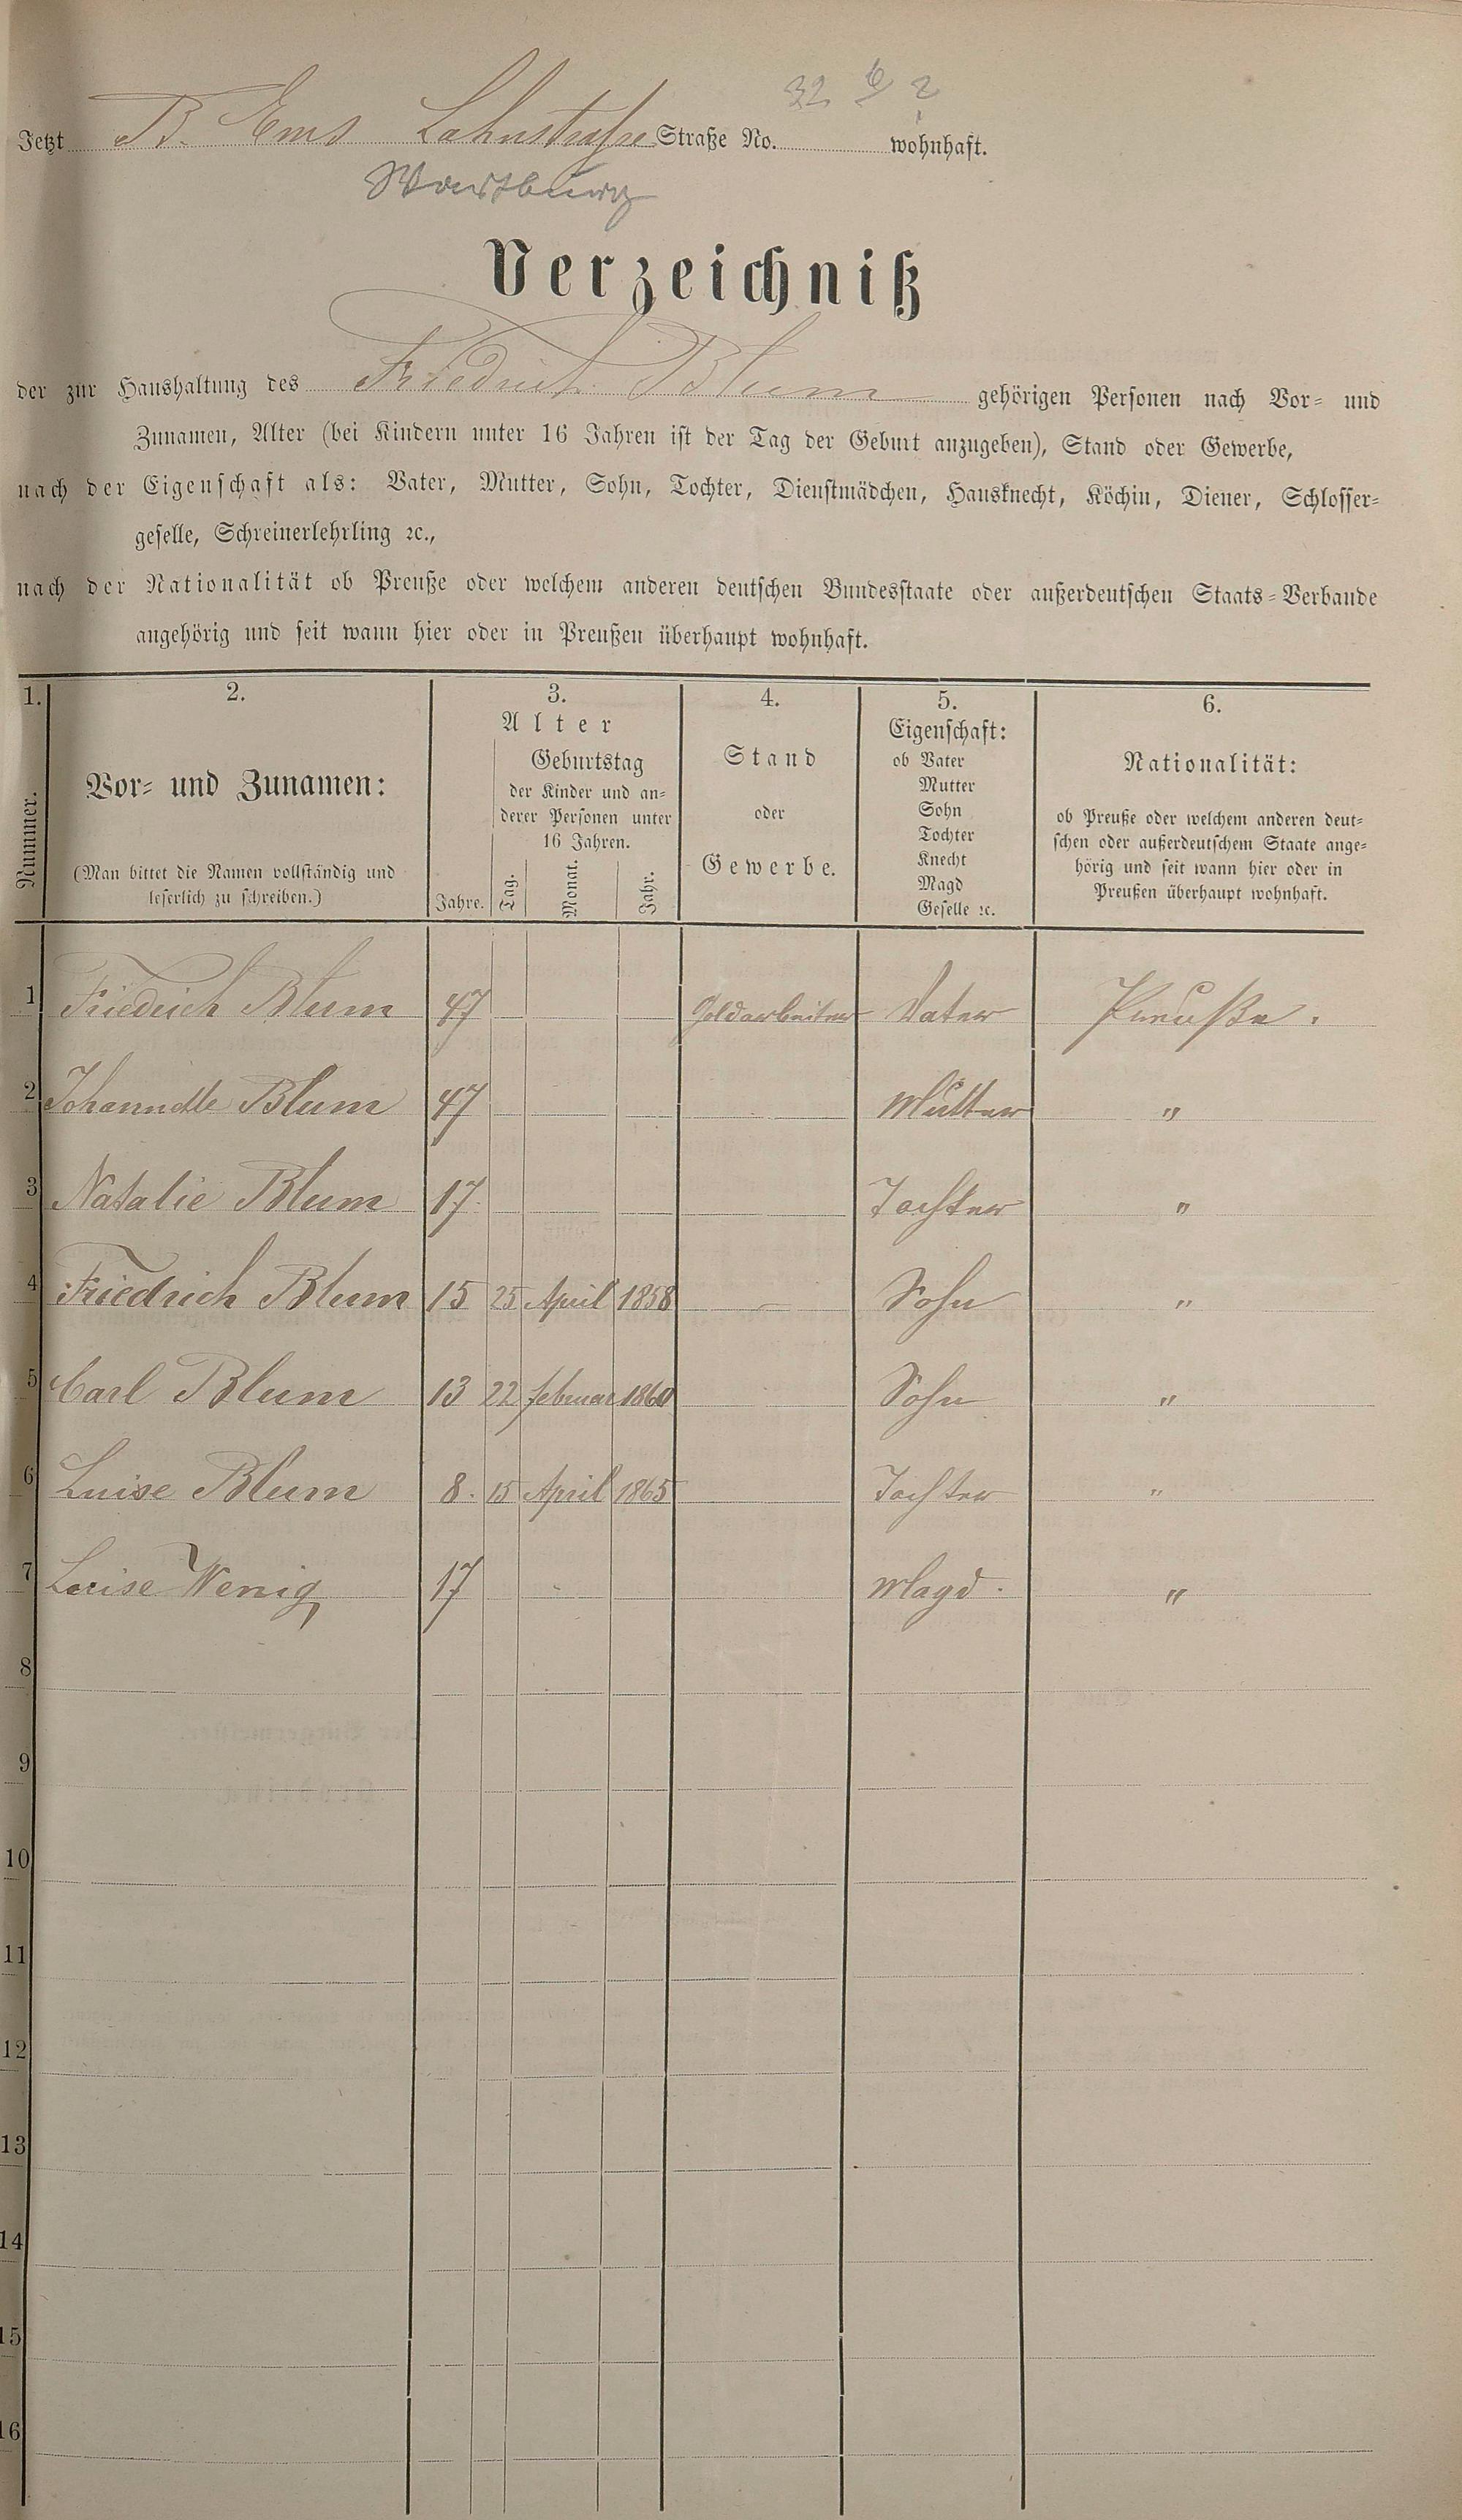 Jetzt B. Ems Lahnstraße Straße No. 32 wohnhaft.
Wartburg
Verzeichniß
der zur Haushaltung des Friedrich Blum gehörigen Personen nach Vor- und
Zunamen, Alter (bei Kindern unter 16 Jahren ist der Tag der Geburt anzugeben), Stand oder Gewerbe,
nach der Eigenschaft als: Vater, Mutter, Sohn, Tochter, Dienstmädchen, Hausknecht, Köchin, Diener, Schlosser-
geselle, Schreinerlehrling ꝛc.,
nach der Nationalität ob Preuße oder welchem anderen deutschen Bundesstaate oder außerdeutschen Staats-Verbande
angehörig und seit wann hier oder in Preußen überhaupt wohnhaft.
1.
Nummer.
2.
Vor- und Zunamen:
(Man bittet die Namen vollständig und
leserlich zu schreiben.)
3.
Alter
Jahre.
Geburtstag
der Kinder und an-
derer Personen unter
16 Jahren.
Tag. Monat. Jahr.
4.
Stand
oder
Gewerbe.
5.
Eigenschaft:
ob Vater
Mutter
Sohn
Tochter
Knecht
Magd
Geselle ꝛc.
6.
Nationalität:
ob Preuße oder welchem anderen deut-
schen oder außerdeutschem Staate ange-
hörig und seit wann hier oder in
Preußen überhaupt wohnhaft.
1 Friedrich Blum 47 Goldarbeiter Vater Preuße.
2 Johannette Blum 47 Mutter "
3 Natalie Blum 17. Tochter "
4 Friedrich Blum 15 25 April 1858 — Sohn "
5 Carl Blum 13 22 februar 1860 Sohn "
6 Luise Blum 8. 15 April 1865 Tochter "
7 Louise Wenig 17 Magd. "
8
9
10
11
12
13
14
15
16